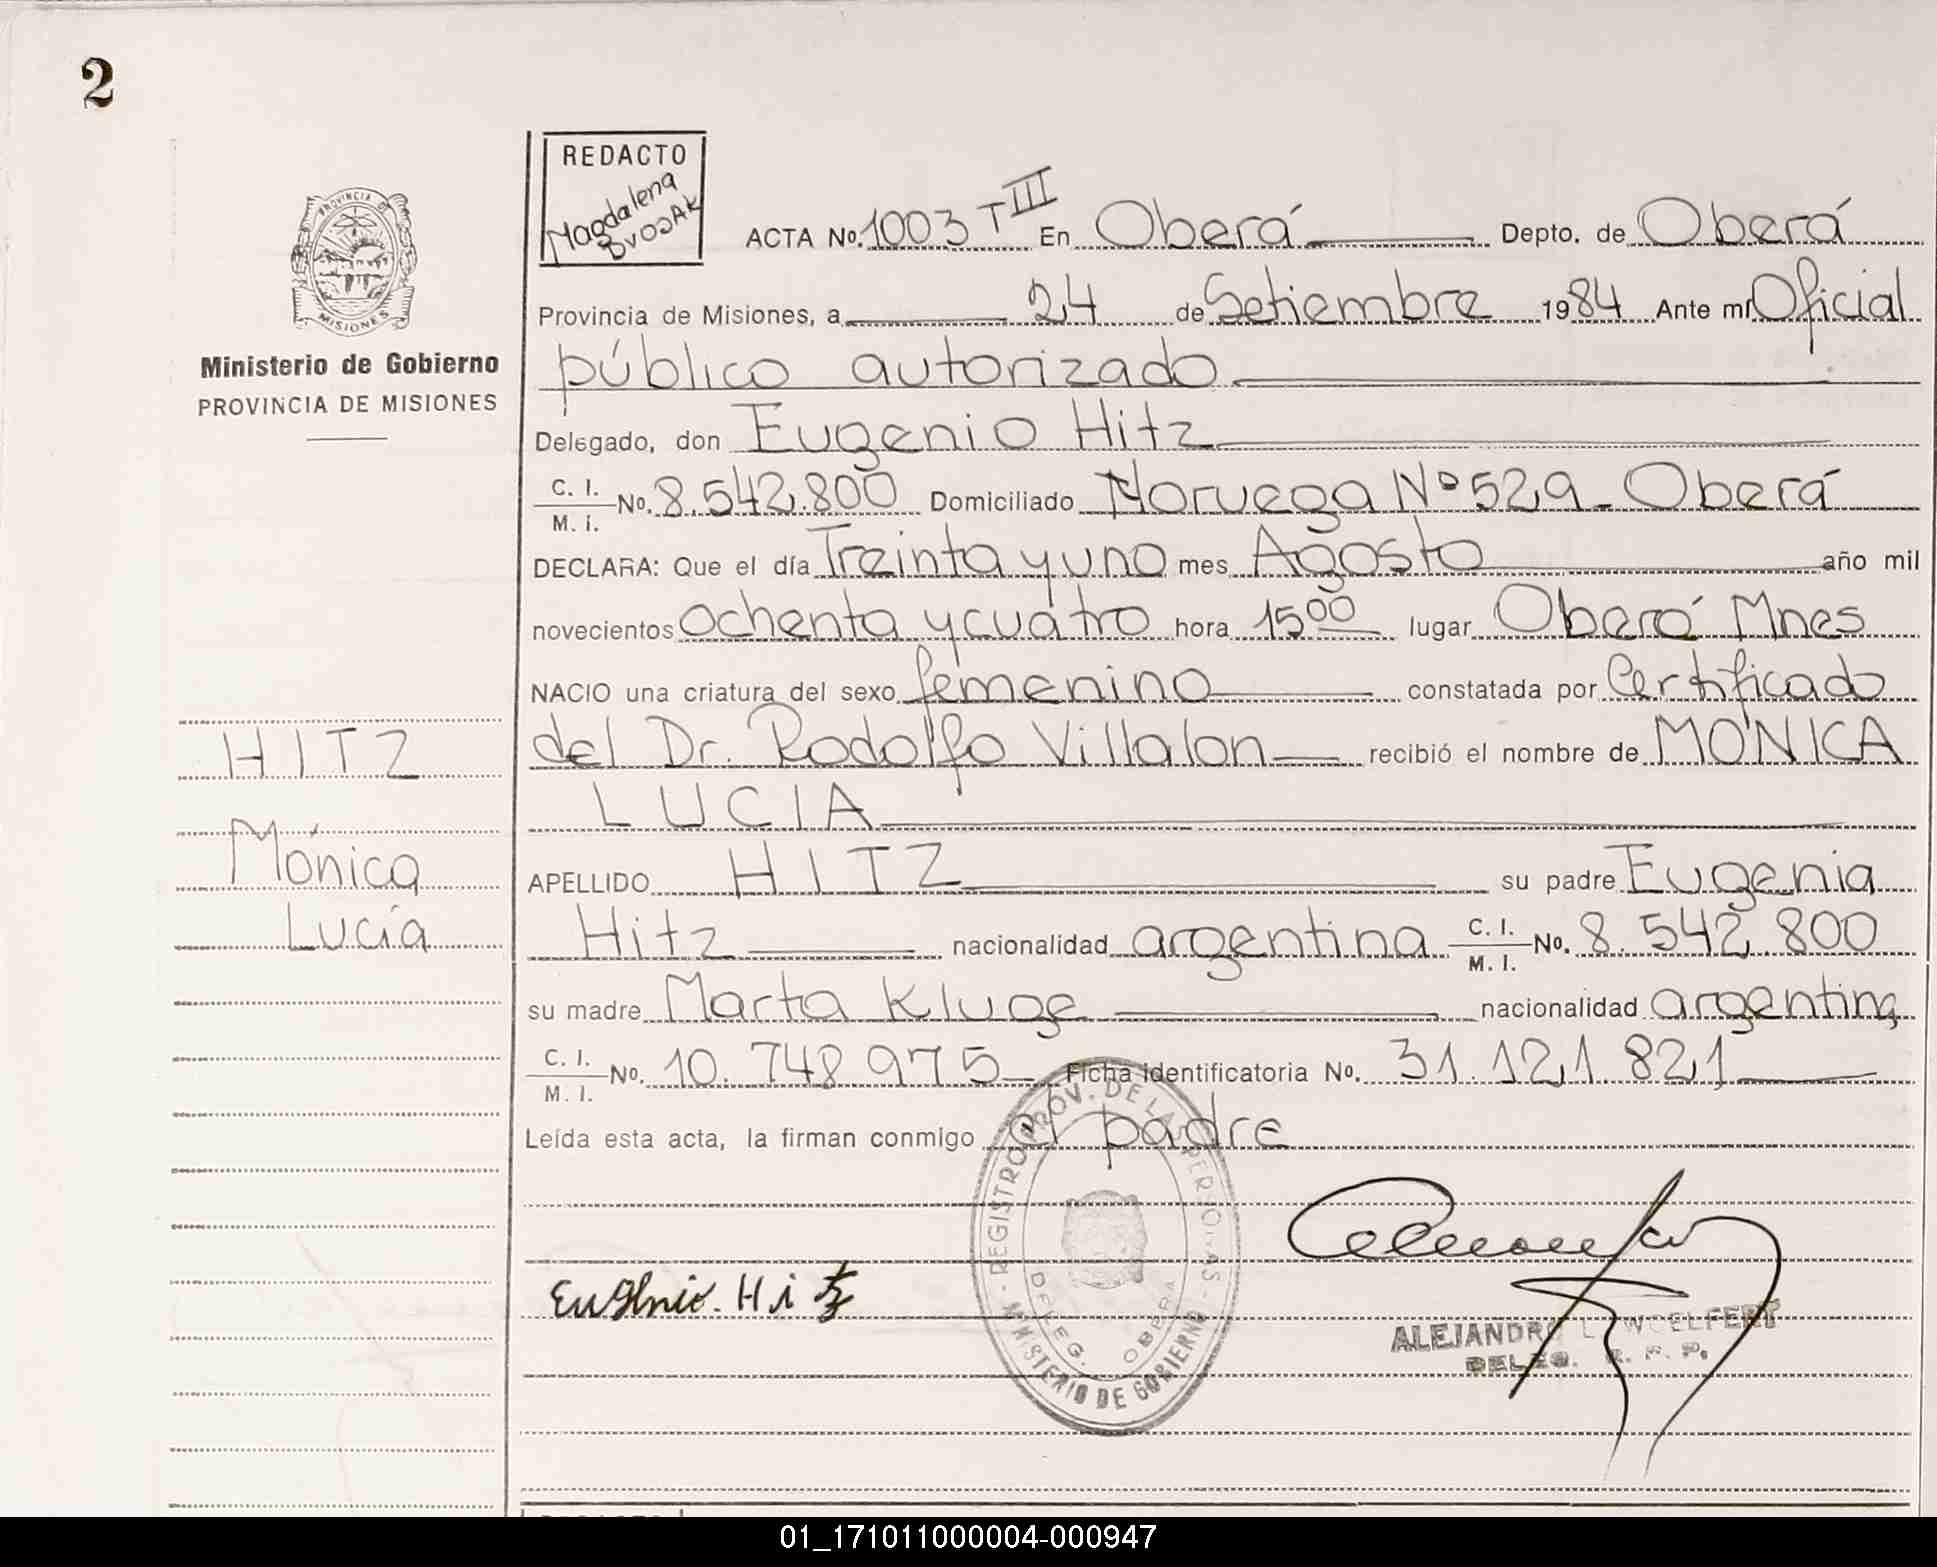 2
REDACTO
Magdalena
ACTA No. 1003 T III En Oberá Depto. de Oberá
Provincia de Misiones, a 24 de Setiembre 1984 Ante mí Oficial
público autorizado
Delegado, don Eugenio Hitz
C. I. / M. I. No. 8.542.800 Domiciliado Noruega Nº 529 - Oberá
DECLARA: Que el día Treinta y uno mes Agosto año mil
novecientos ochenta y cuatro hora 15 00 lugar Oberá Mnes
NACIO una criatura del sexo femenino constatada por Certificado
del Dr. Rodolfo Villalon recibió el nombre de MÓNICA
LUCIA
APELLIDO HITZ su padre Eugenia
Hitz nacionalidad argentina C. I. / M. I. No. 8.542.800
su madre Marta Kluge nacionalidad argentina
C. I. / M. I. No. 10.748 975 Ficha identificatoria No. 31.121.821
Leída esta acta, la firman conmigo el padre
Eugenio. Hitz
REGISTRO PROV. DE LAS PERSONAS - MINISTERIO DE GOBIERNO
DELEG. OBERA
ALEJANDRO L. WOELFERT
DELEG. R. P. P.
PROVINCIA DE
MISIONES
Ministerio de Gobierno
PROVINCIA DE MISIONES
HITZ
Mónica
Lucía
01_171011000004-000947